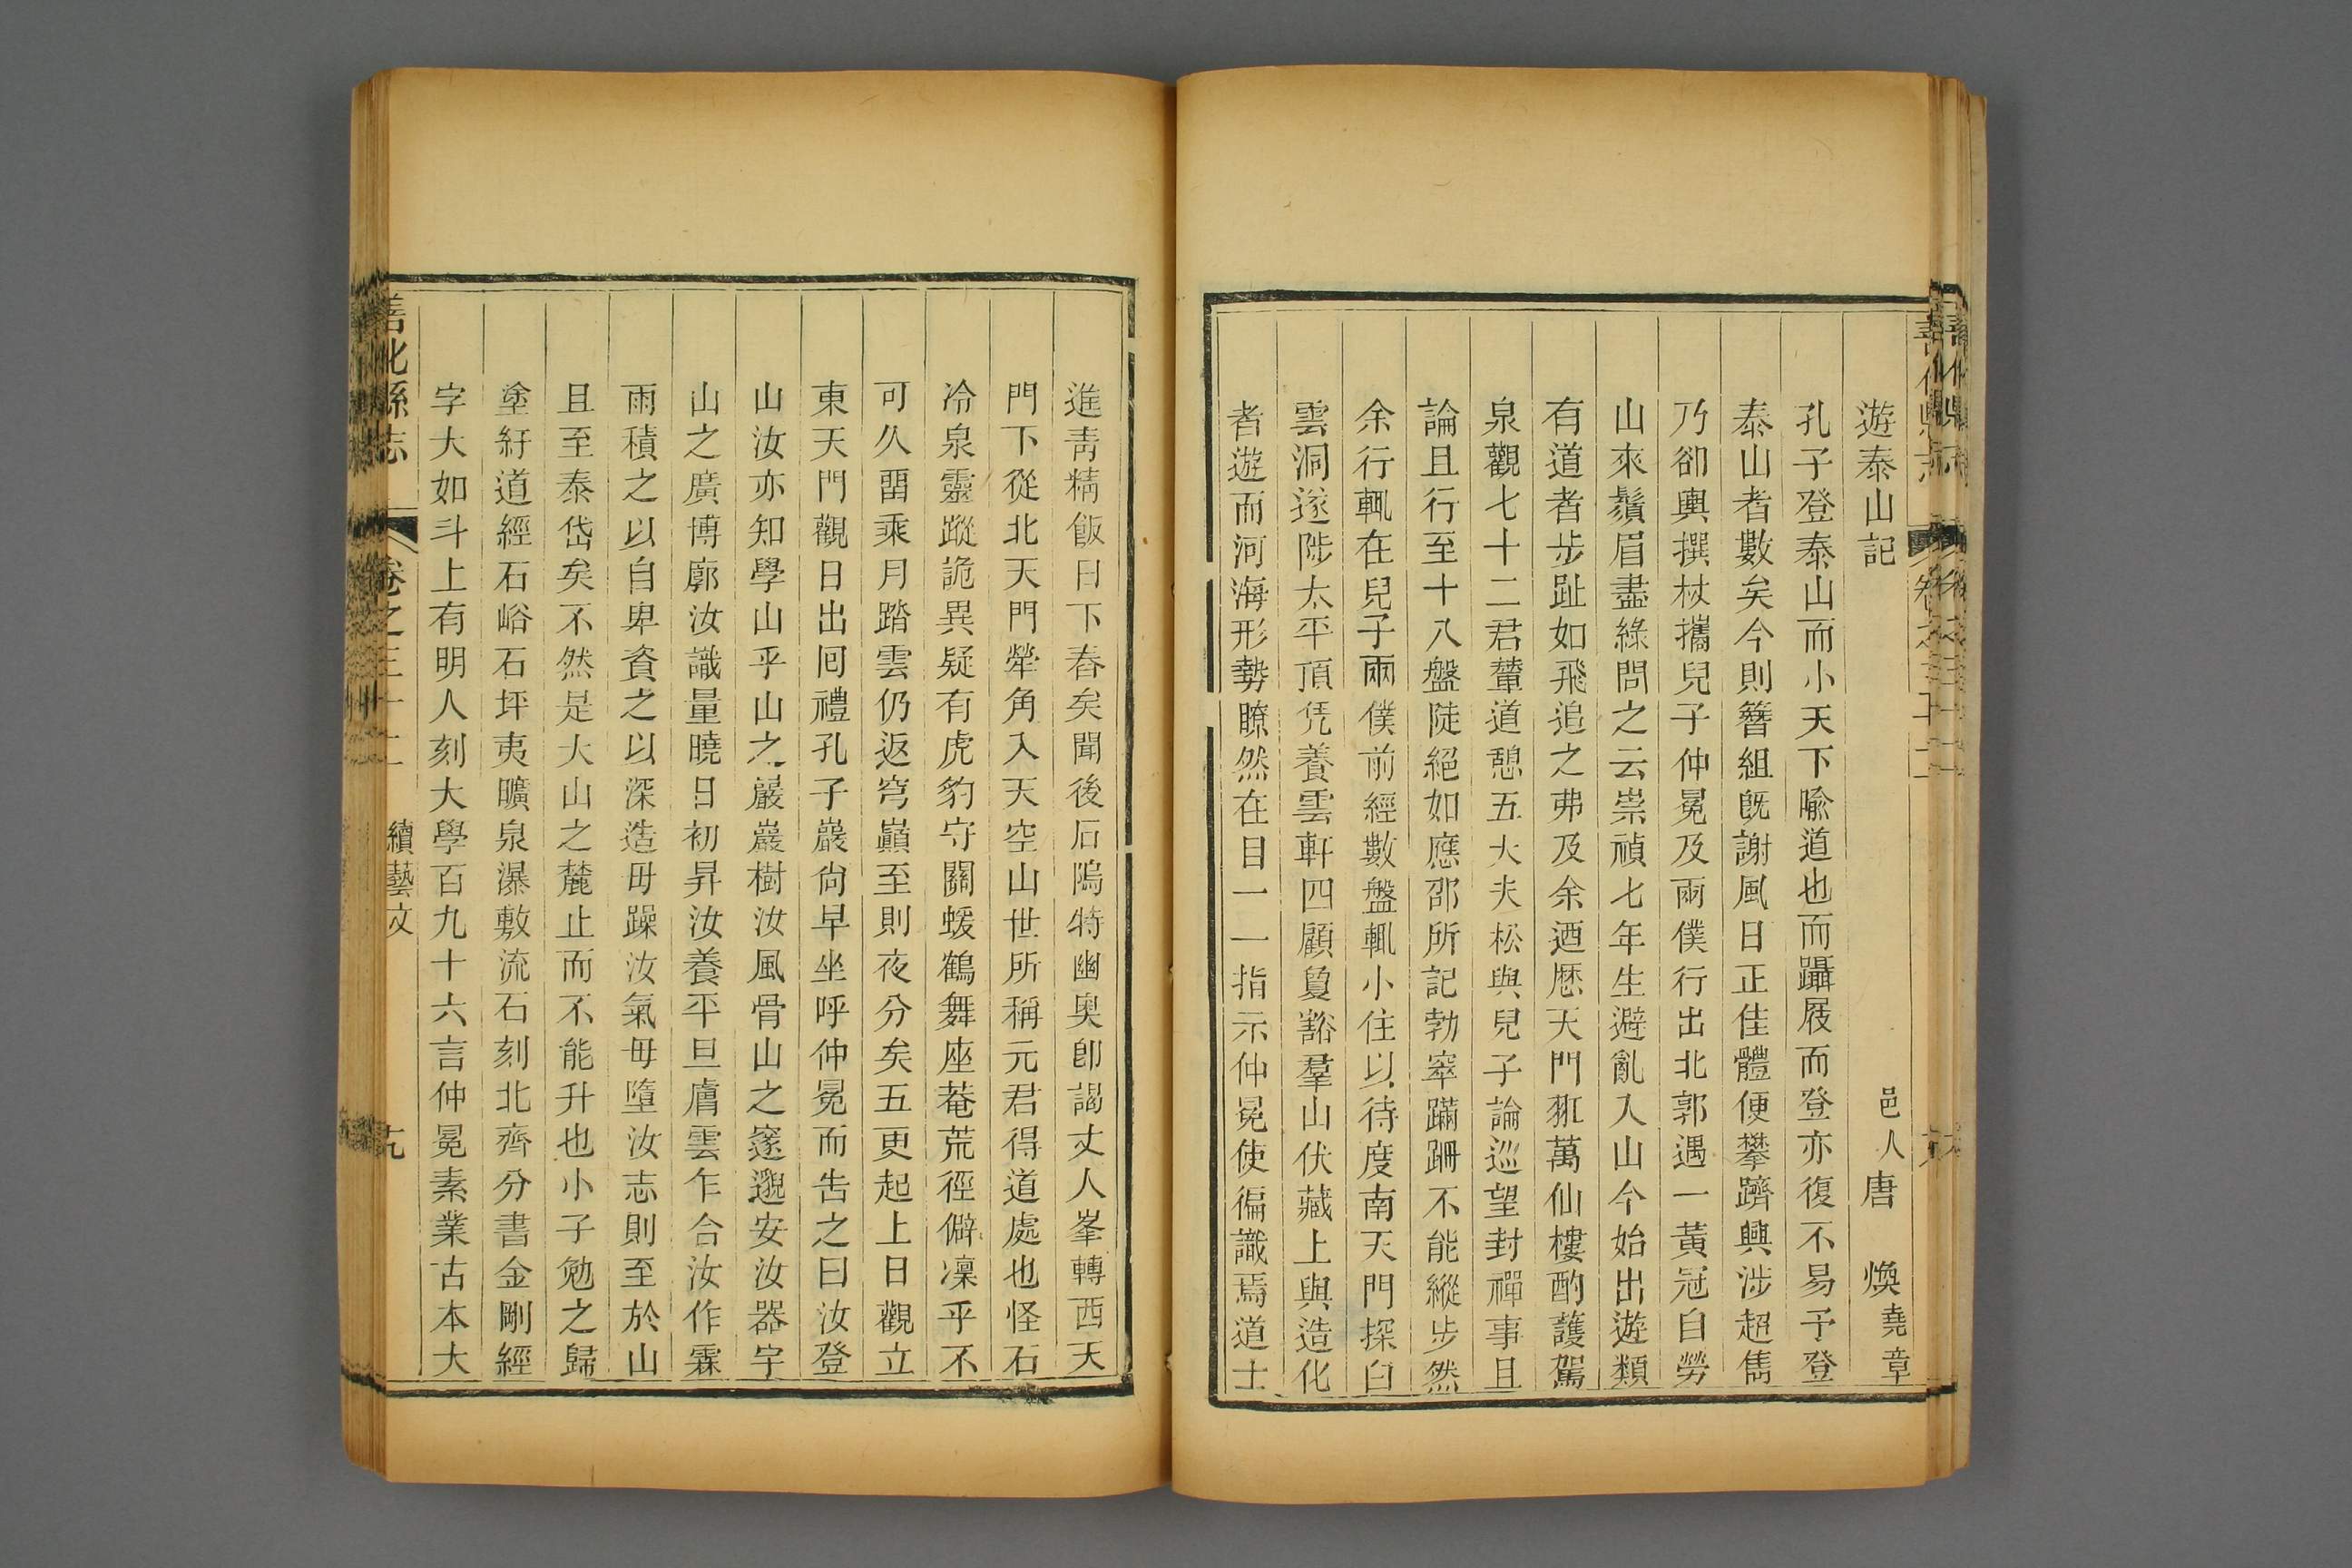 遊泰山記
邑人唐　煥堯章
孔子登泰山而小天下喻道也而躡屐而登亦復不易予登
泰山者數矣今則簪組旣謝風日正佳體便攀躋興涉超雋
乃卻輿撰杖攜兒子仲冕及兩僕行出北郭遇一黃冠自勞
山來鬚眉盡綠問之云崇禎七年生避亂入山今始出遊類
有道者步趾如飛追之弗及余迺歷天門狐萬仙樓酌護駕
泉觀七十二君輦道憩五大夫松與兒子論巡望封禪事且
論且行至十八盤陡絕如應邵所記勃窣蹣跚不能縱步然
余行輒在兒子兩僕前經數盤輒小住以待度南天門探白
雲洞遂陟太平頂凭養雲軒四顧敻豁羣山伏藏上與造化
者遊而河海形勢瞭然在目一一指示仲冕使徧識焉道士
進靑精飯日下舂矣聞後石隖特幽奧卽謁丈人峯轉西天
門下從北天門犖角入天空山世所稱元君得道處也怪石
冷泉靈蹤詭異疑有虎豹守關蝯鶴舞座菴荒徑僻凜乎不
可久畱乘月踏雲仍返穹巔至則夜分矣五更起上日觀立
東天門觀日出囘禮孔子巖尙早坐呼仲冕而告之曰汝登
山汝亦知學山乎山之嚴巖樹汝風骨山之邃邈安汝器宇
山之廣博廓汝識量曉日初昇汝養平旦膚雲乍合汝作霖
雨積之以自卑資之以深造毋躁汝氣毋墮汝志則至於山
且至泰岱矣不然是大山之麓止而不能升也小子勉之歸
塗紆道經石峪石坪夷曠泉瀑敷流石刻北齊分書金剛經
字大如斗上有明人刻大學百九十六言仲冕素業古本大
善化縣志
卷之三十二
續藝文